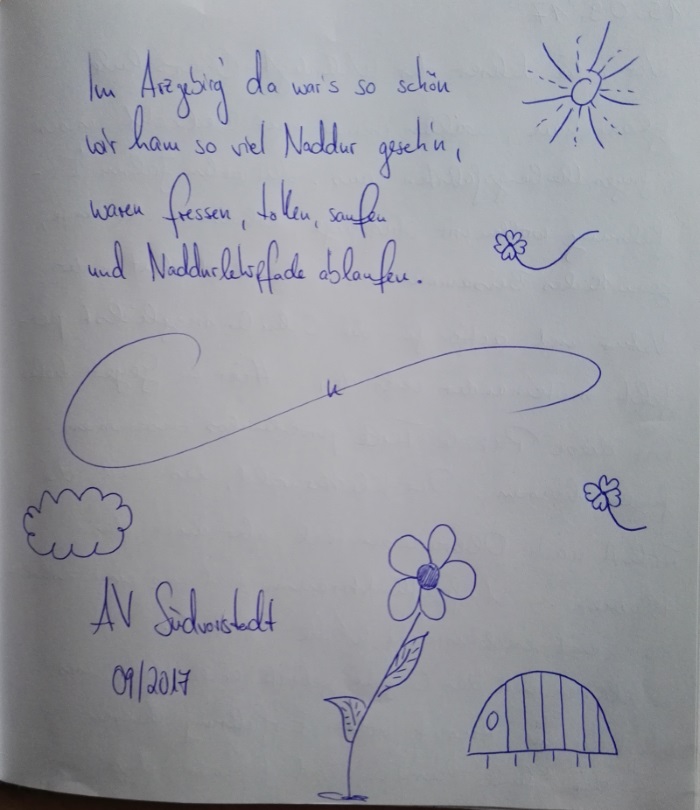 Im Arzgebirg' da war's so schön
wir ham so viel Naddur geseh'n,
waren fressen, tollen, saufen
und Naddurlehrpfade ablaufen.
AV Südvorstadt
09/2017